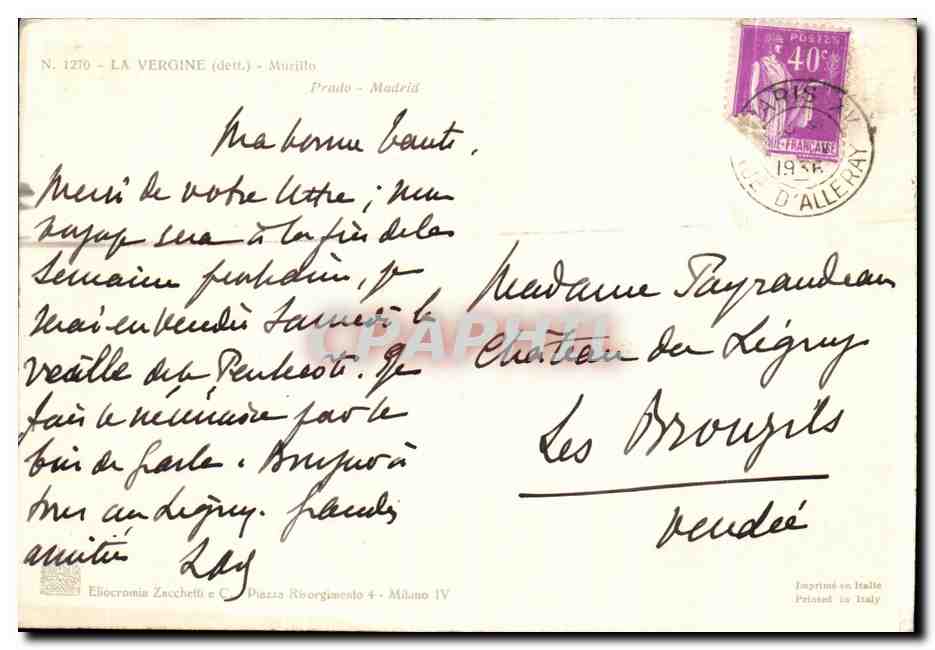 N. 1270 - LA VERGINE (dett.) - Murillo
Prado - Madrid
Ma bonne tante,
Merci de votre lettre ; mon
voyage sera à la fin de la
semaine prochaine, je
serai en vendée samedi la
veille de la Pentecôte. Je
fais le nécessaire pour le
de . Bonjour à
tous au Légny. grandes
amitiés
POSTES
40c
PARIS XV
1936
RUE D'ALLERAY
Madame Payraudeau
Château du Légny
Les Brouzils
Vendée
CPAPHIL
Eliocromia Zacchetti e C. Piazza Risorgimento 4 - Milano IV
Imprimé en Italie
Printed in Italy